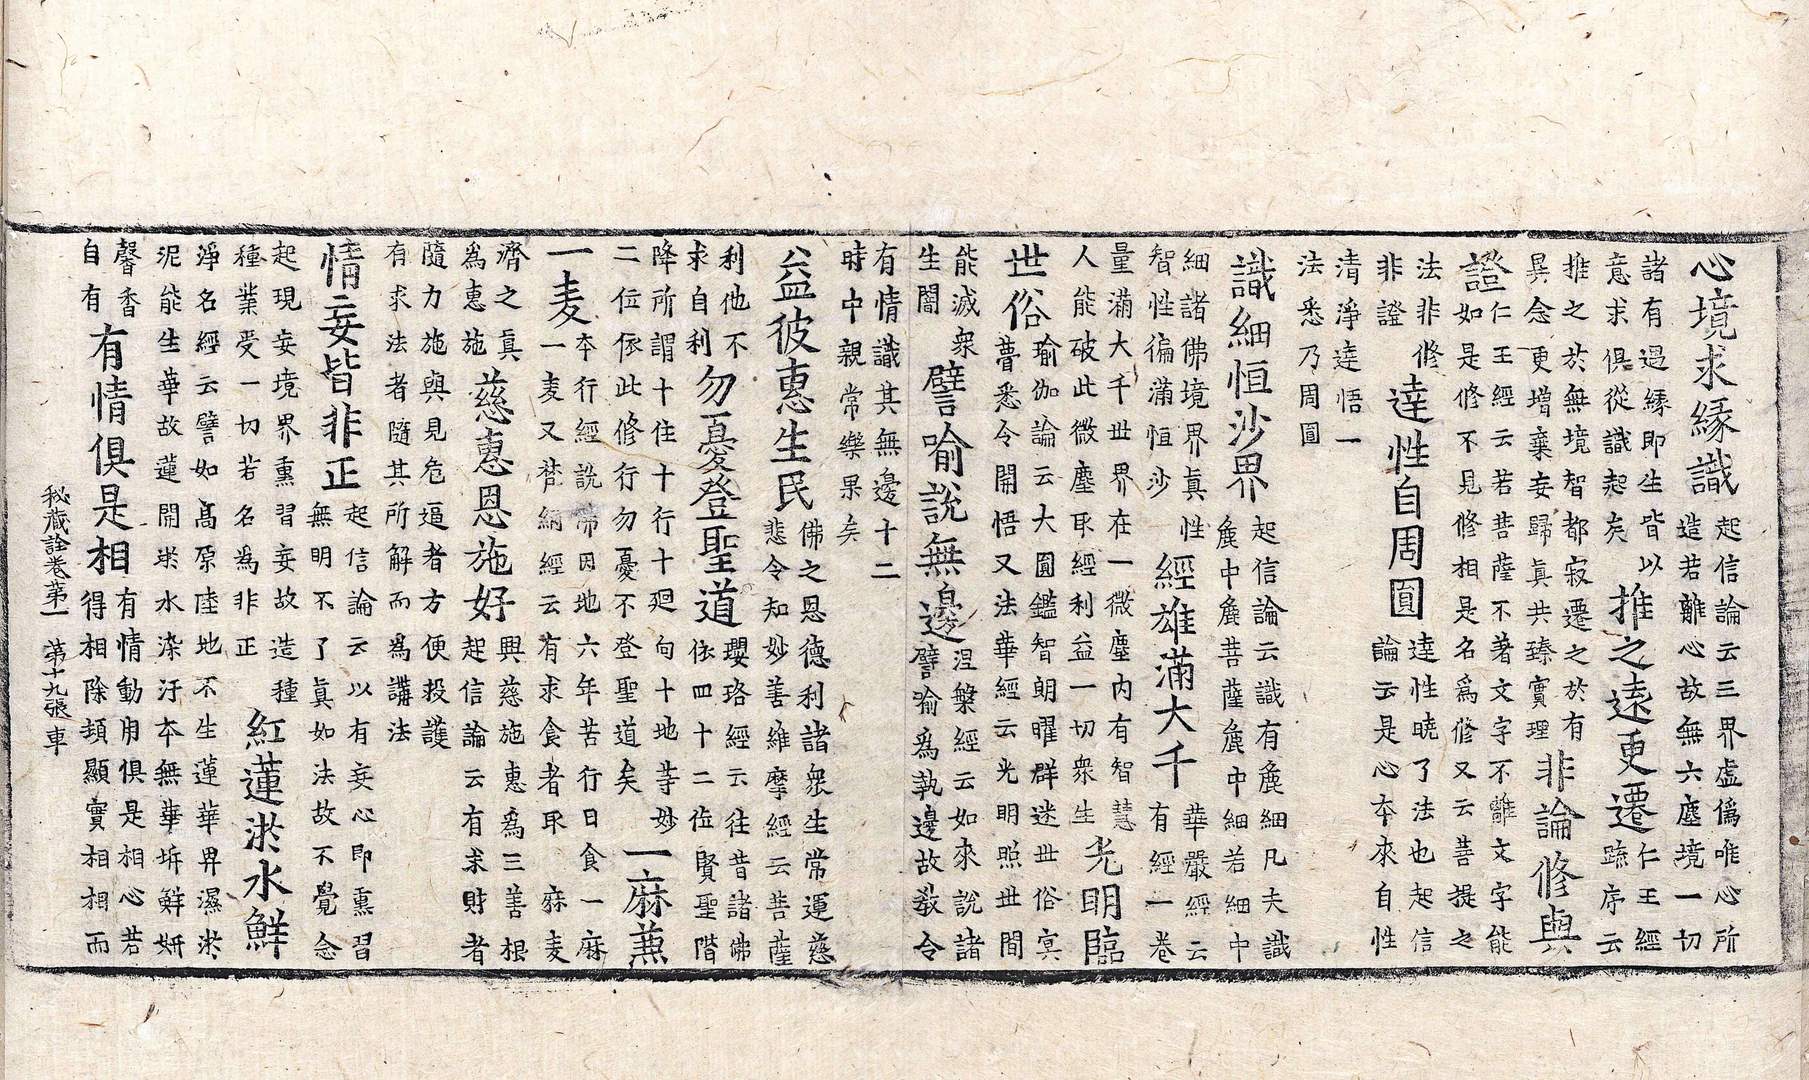 心境求緣識
起信論云三界虛僞唯心所
造若離心故無六塵境一切
諸有過緣即生皆以
意求俱從識起矣
推之遠更遷
仁王經
䟽序云
推之於無境智都寂遷之於有
異念更增棄妄歸真共臻實理
非論修與
證
仁王經云若菩薩不著文字不離文字能
如是修不見修相是名爲修又云菩提之
法非修
非證
達性自周圓
達性曉了法也起信
論云是心本來自性
清淨達悟一
法悉乃周圓
識細恒沙界
起信論云識有麁細凡夫識
麁中麁菩薩麁中細若細中
細諸佛境界真性
智性徧滿恒沙
經雄滿大千
華嚴經云
有經一卷
量滿大千世界在一微塵內有智慧
人能破此微塵取經利益一切衆生
光明臨
世俗
瑜伽論云大圓鑑智朗曜群迷世俗㝠
瞢悉令開悟又法華經云光明照世間
能滅衆
生闇
譬喻說無邊
涅槃經云如來說諸
譬喻爲執邊故教令
有情識其無邊十二
時中親常樂果矣
益彼惠生民
佛之恩德利諸衆生常運慈
悲令知妙善維摩經云菩薩
利他不
求自利
勿憂登聖道
瓔珞經云往昔諸佛
依四十二位賢聖階
降所謂十住十行十迴向十地等妙
二位依此修行勿憂不登聖道矣
一麻兼
一麦
本行經說佛因地六年苦行日食一麻
一麦又梵網經云有求食者取麻麦
濟之真
爲惠施
慈惠恩施好
興慈施惠爲三善根
起信論云有求財者
隨力施與見危逼者方便投護
有求法者隨其所解而爲講法
情妄皆非正
起信論云以有妄心即熏習
無明不了真如法故不覺念
起現妄境界熏習妄故造種
種業受一切若名爲非正
紅蓮淤水鮮
淨名經云譬如高原陸地不生蓮華界濕淤
泥能生華故蓮開淤水染汙本無華坼鮮妍
馨香
自有
有情俱是相
有情動用俱是相心若
得相除頓顯實相相而
秘藏詮卷第一 第十九張 車